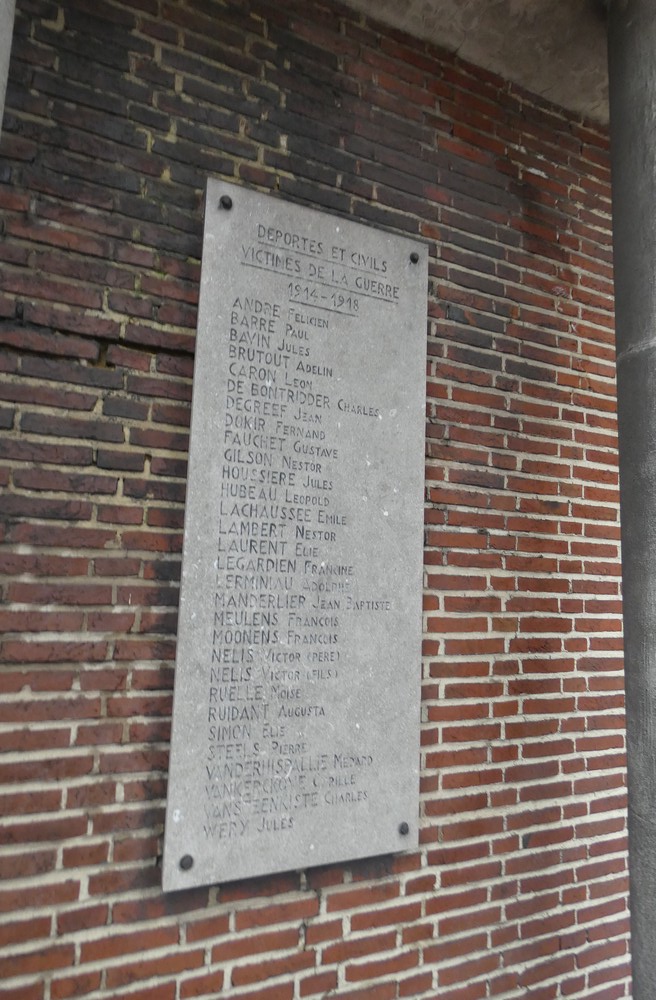 DEPORTES ET CIVILS
VICTIMES DE LA GUERRE
1914-1918
ANDRE FELICIEN
BARRE PAUL
BAVIN JULES
BRUTOUT ADELIN
CARON LEON
DE BONTRIDDER CHARLES
DEGREEF JEAN
DOKIR FERNAND
FAUCHET GUSTAVE
GILSON NESTOR
HOUSSIERE JULES
HUBEAU LEOPOLD
LACHAUSSEE EMILE
LAMBERT NESTOR
LAURENT ELIE
LEGARDIEN FRANCINE
LERMINIAU ADOLPHE
MANDERLIER JEAN BAPTISTE
MEULENS FRANÇOIS
MOONENS FRANÇOIS
NELIS VICTOR (PERE)
NELIS VICTOR (FILS)
RUELLE MOISE
RUIDANT AUGUSTA
SIMON ELIE
STEELS PIERRE
MEDARD
CYRILLE
VANSTEENKISTE CHARLES
WERY JULES